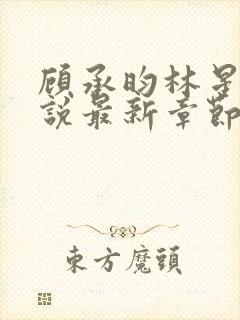 顾承昀林星
說最新章節
東方魔頭